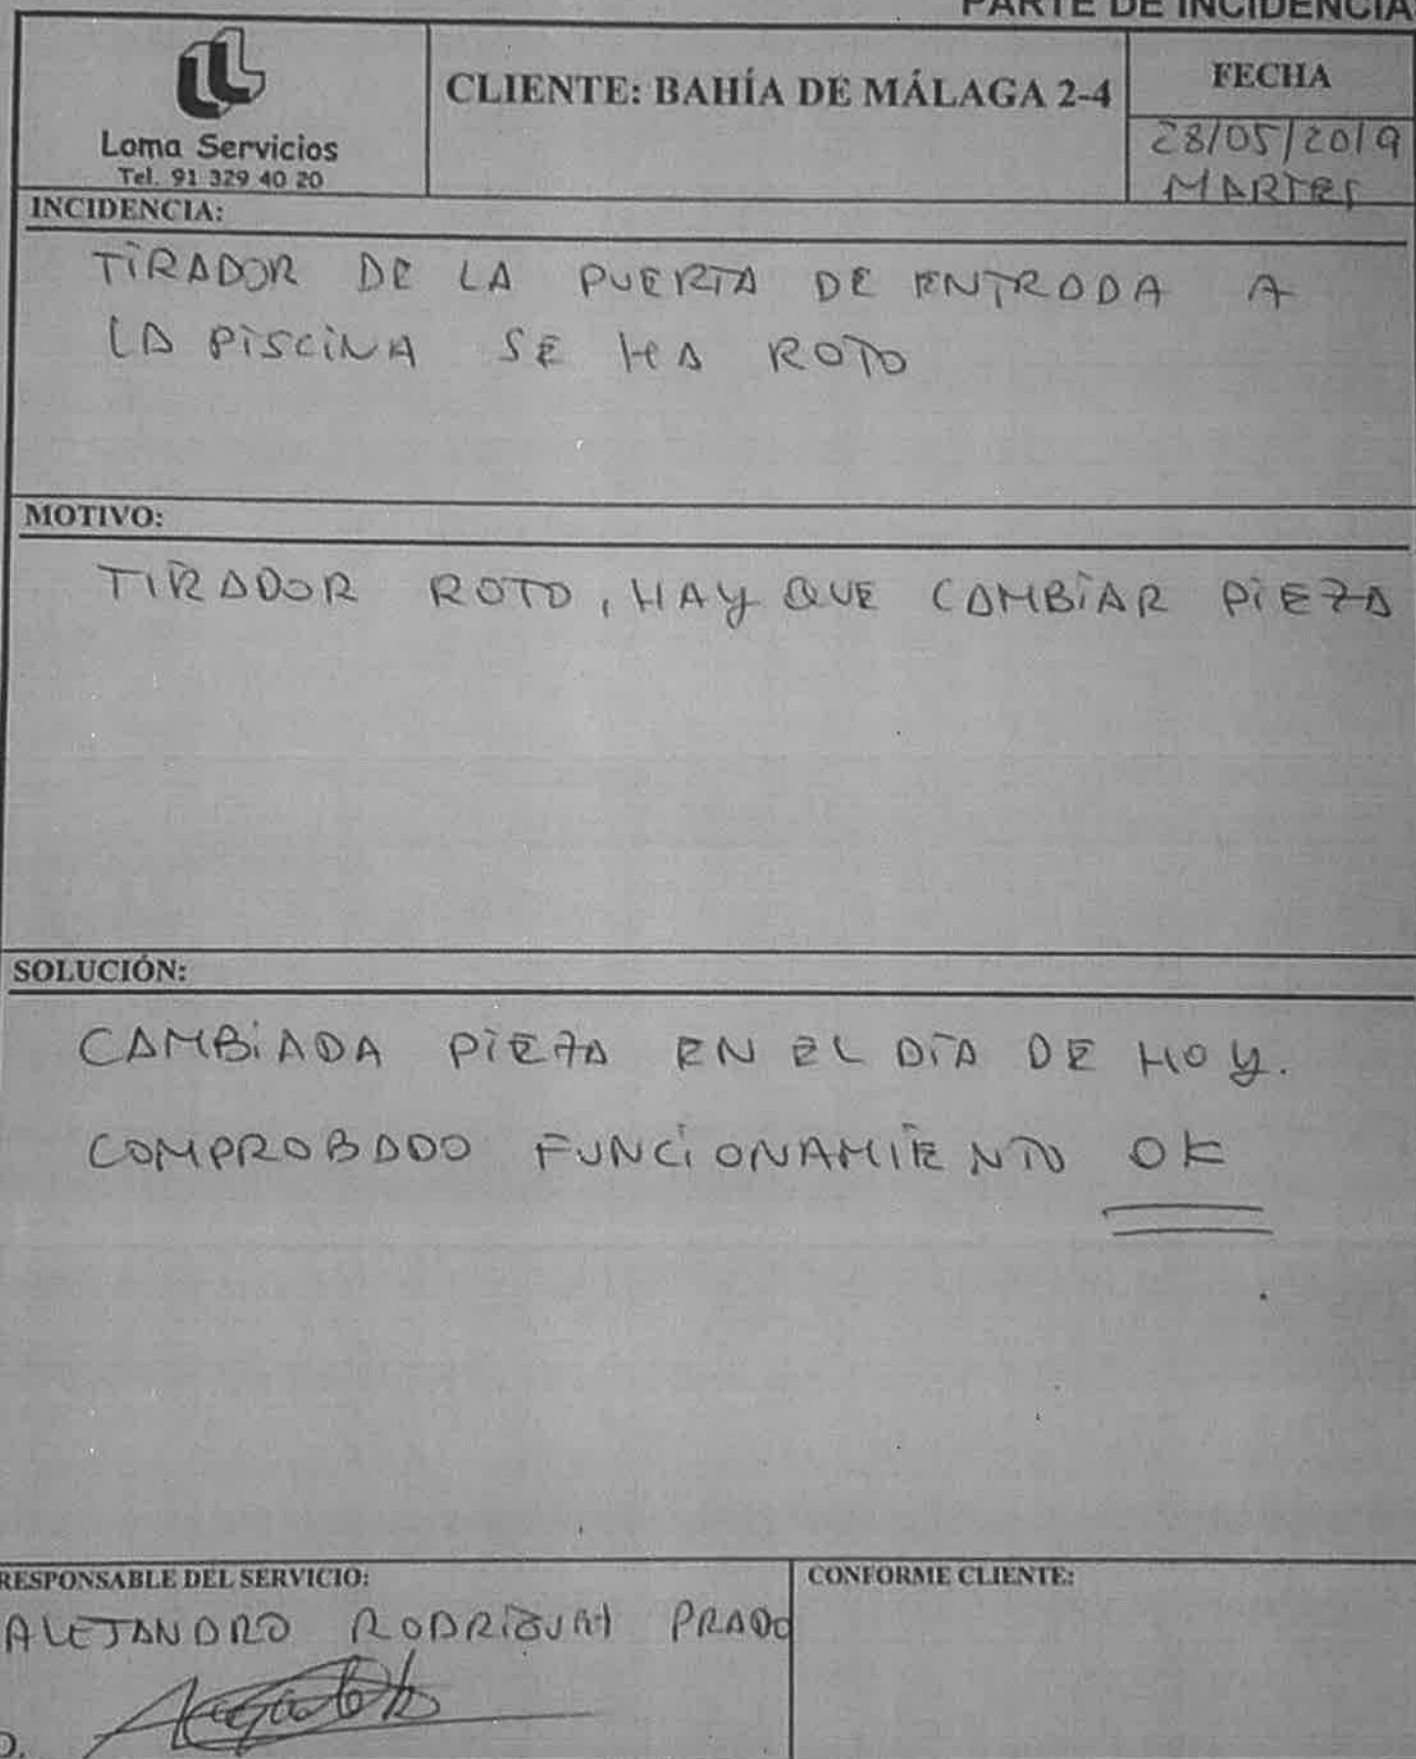 PARTE DE INCIDENCIA
Loma Servicios
Tel. 91 329 40 20
CLIENTE: BAHÍA DE MÁLAGA 2-4
FECHA
28/05/2019
MARTES
INCIDENCIA:
TIRADOR DE LA PUERTA DE ENTRADA A
LA PISCINA SE HA ROTO
MOTIVO:
TIRADOR ROTO, HAY QUE CAMBIAR PIEZA
SOLUCIÓN:
CAMBIADA PIEZA EN EL DÍA DE HOY.
COMPROBADO FUNCIONAMIENTO OK
RESPONSABLE DEL SERVICIO:
ALEJANDRO RODRIGUEZ PRADO
CONFORME CLIENTE: